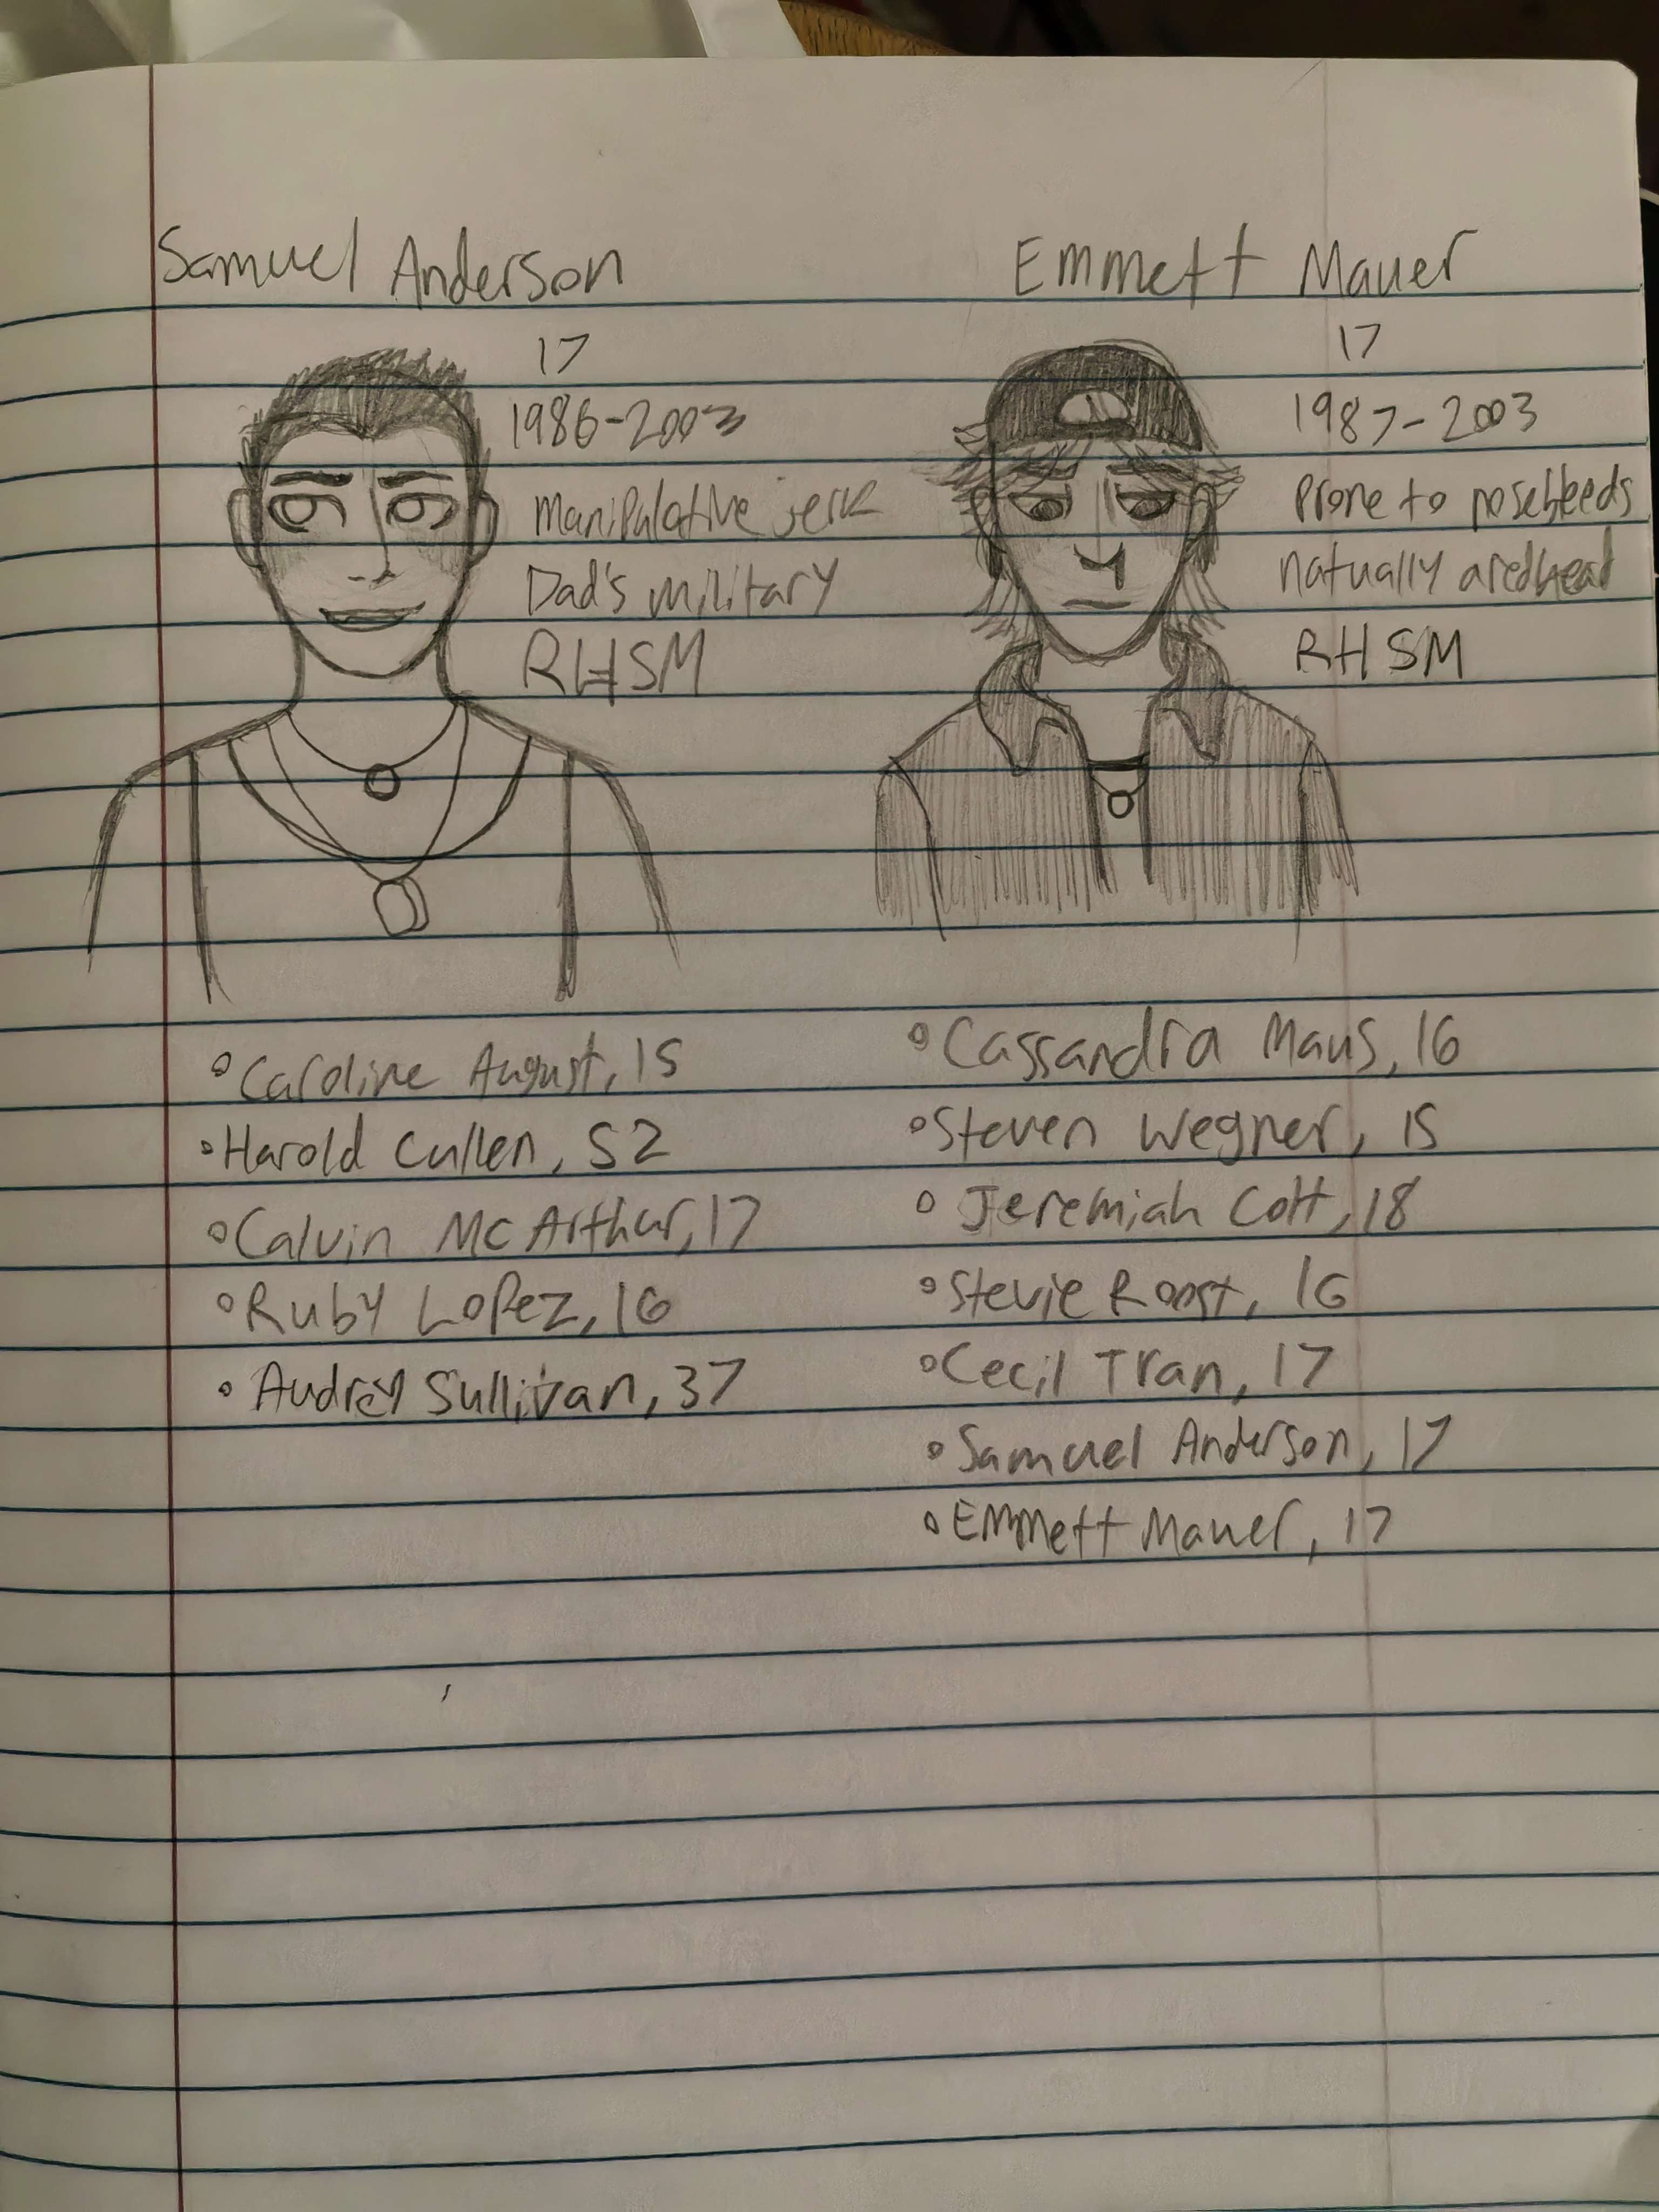 Samuel Anderson
17
1986-2003
Manipulative jerk
Dad's military
RHSM
Emmett Mauer
17
1987-2003
Prone to nosebleeds
natually a redhead
RHSM
Caroline August, 15
Harold Cullen, 52
Calvin McArthur, 17
Ruby Lopez, 16
Audrey Sullivan, 37
Cassandra Maus, 16
Steven Wegner, 15
Jeremiah Cott, 18
Stevie Roost, 16
Cecil Tran, 17
Samuel Anderson, 17
Emmett Mauer, 17